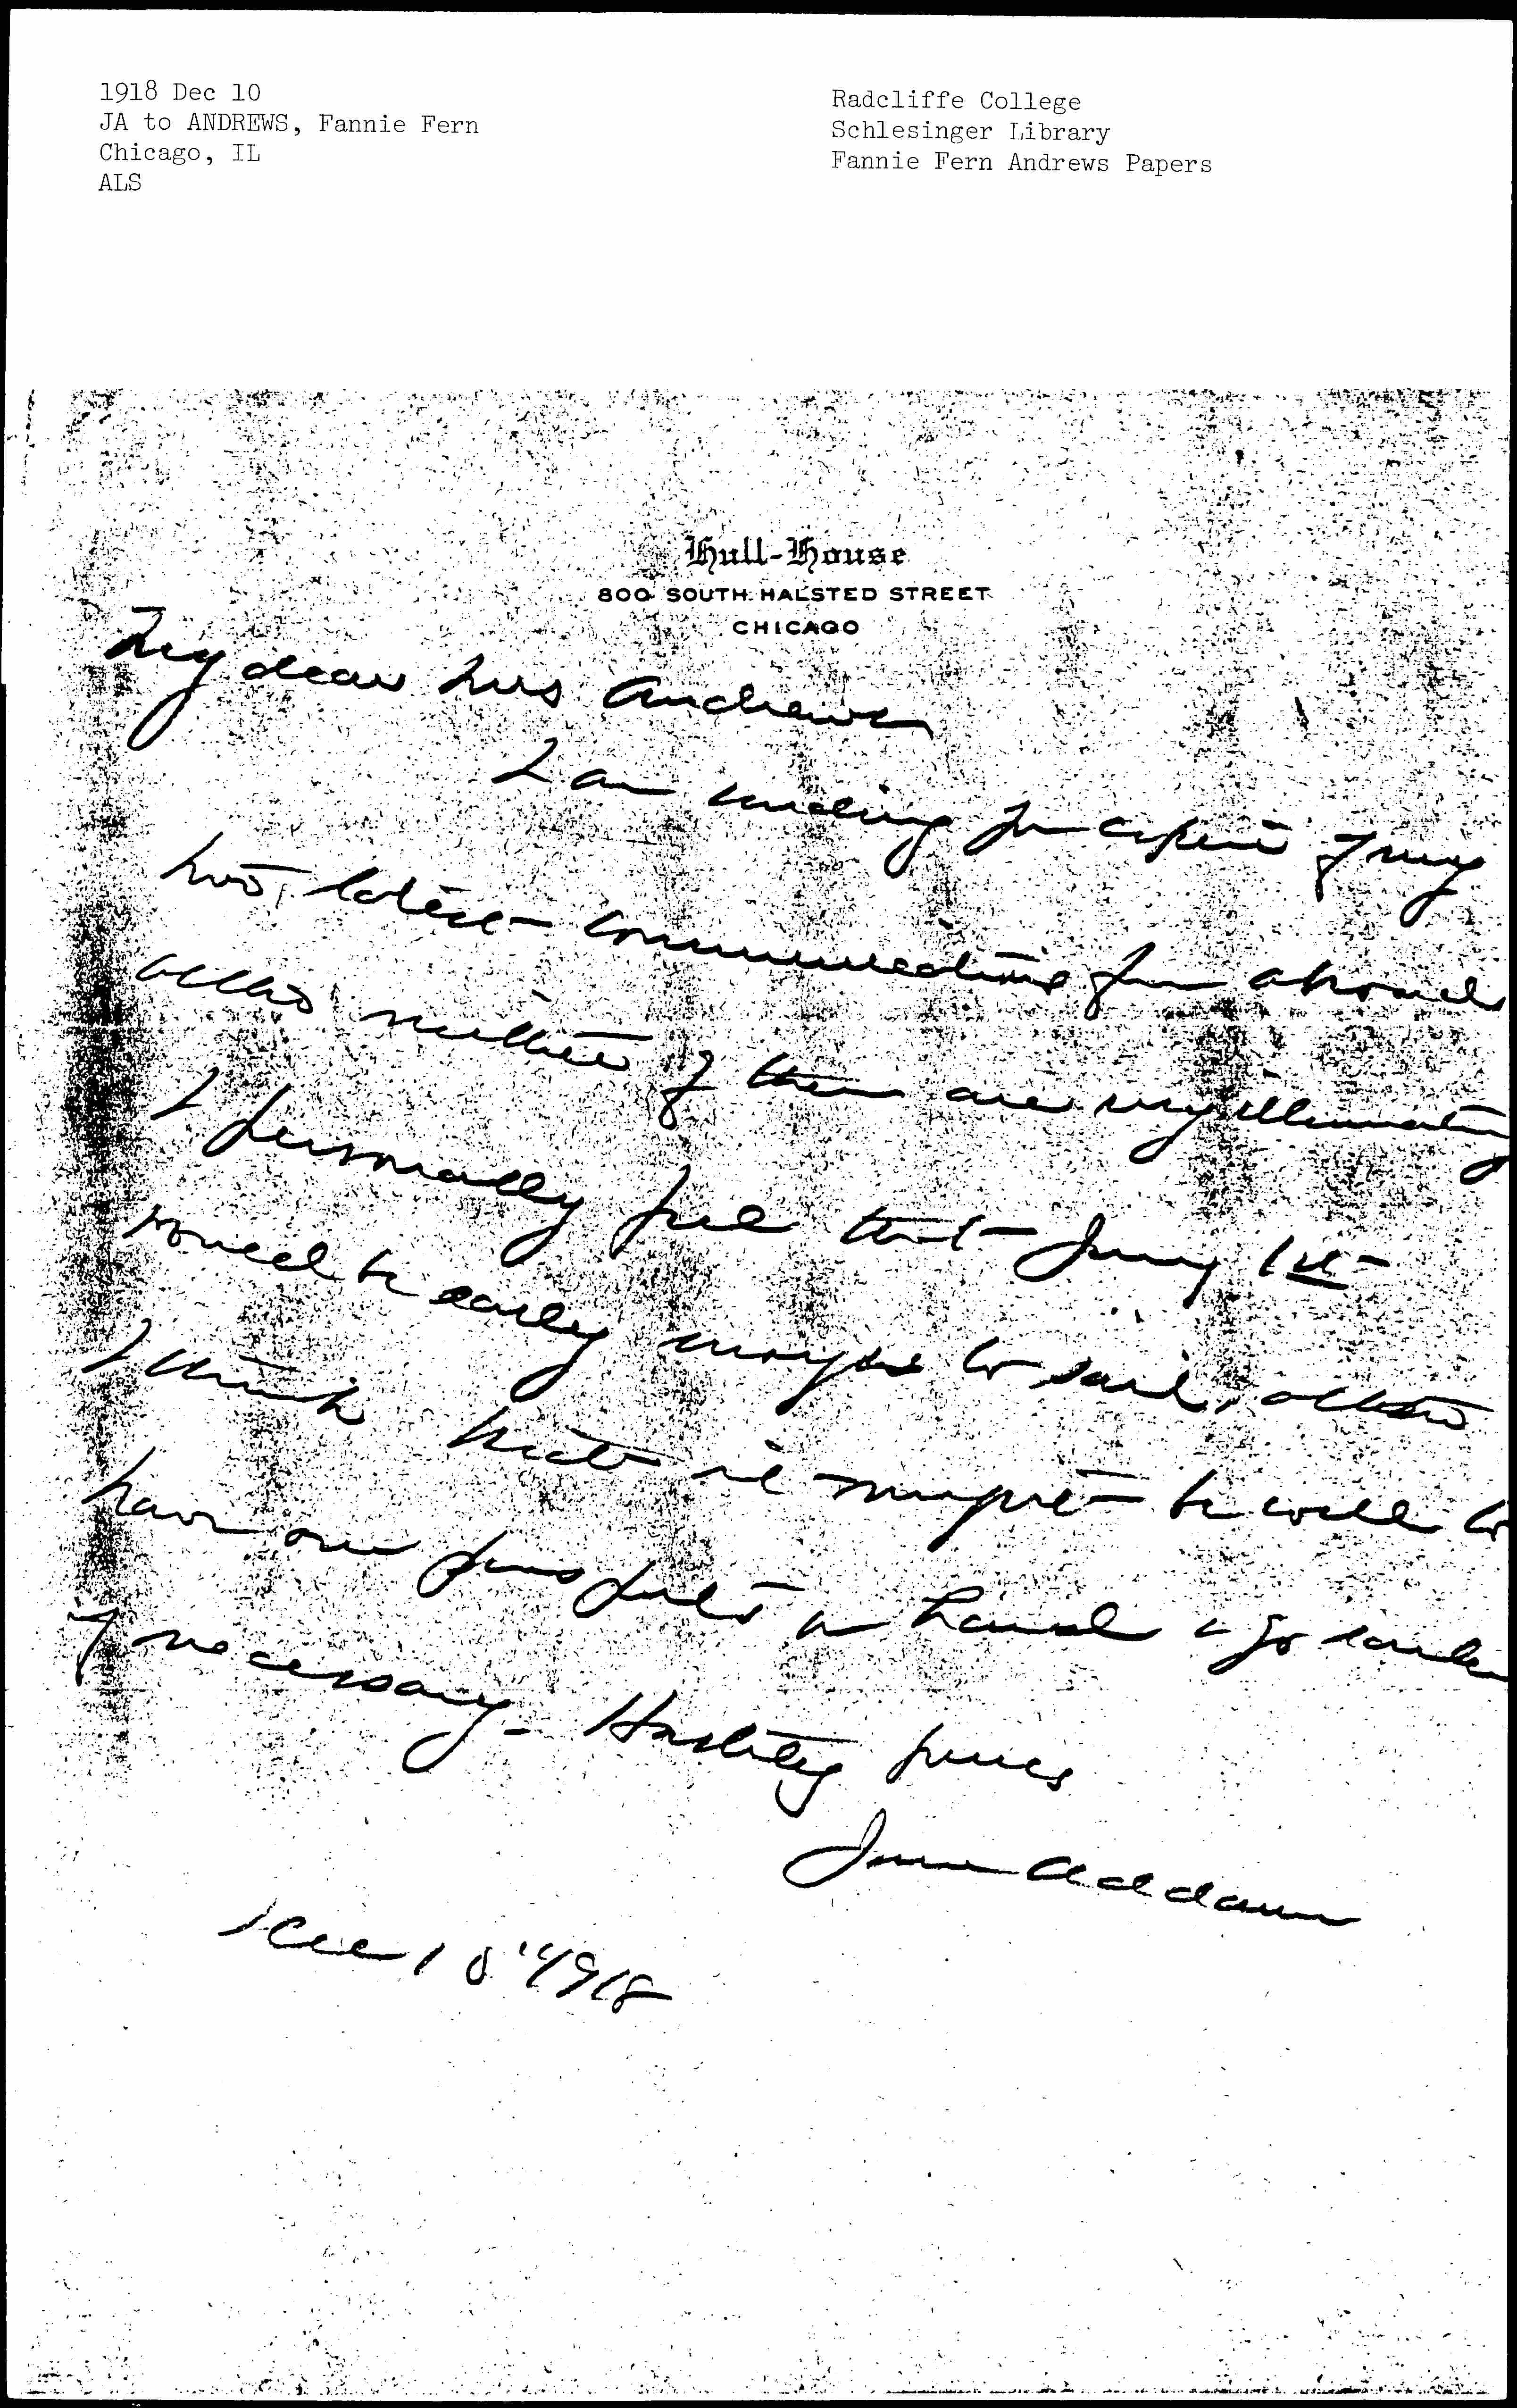 1918 Dec 10
JA to ANDREWS, Fannie Fern
Chicago, IL
ALS
Radcliffe College
Schlesinger Library
Fannie Fern Andrews Papers
Hull-House
800 SOUTH HALSTED STREET
CHICAGO
My dear Mrs Andrews
I am sending you copies of my
two latest communications from abroad
altho neither of them are very illuminating
I personally feel that Jany 1st
would be early enough to sail, altho
I think that it might be well to
have our passports in hand & go earlier
if necessary - Hastily yours
Jane Addams
Dec 10" 1918